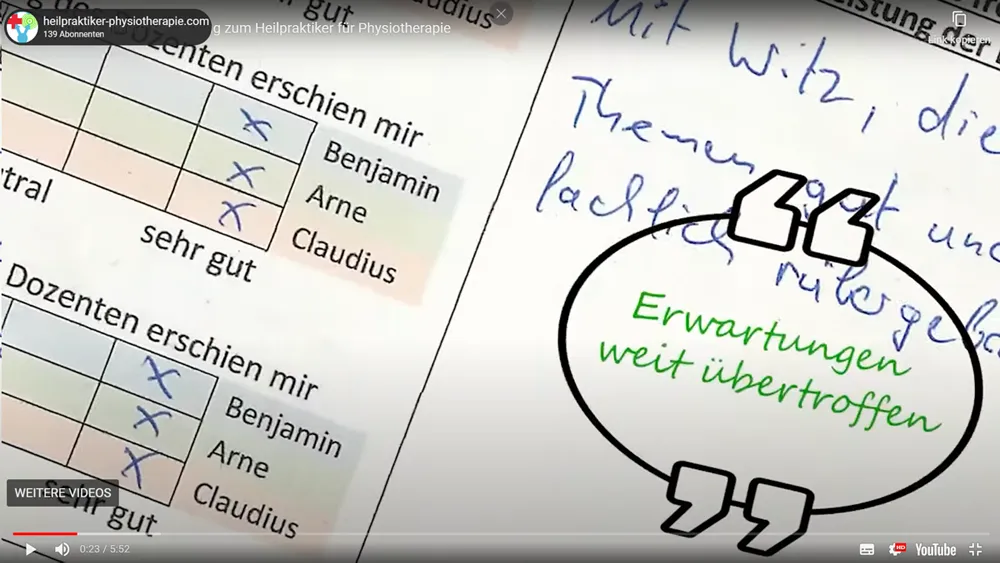 heilpraktiker-physiotherapie.com
139 Abonnenten
g zum Heilpraktiker für Physiotherapie
Link kopieren
gut
des Dozenten erschien mir
Benjamin
Arne
Claudius
tral
sehr gut
Dozenten erschien mir
Benjamin
Arne
Claudius
sehr gut
istung der
Mit Witz, die
Themen gut und
fachlich
Erwartungen
weit übertroffen
WEITERE VIDEOS
0:23 / 5:52
HD
YouTube